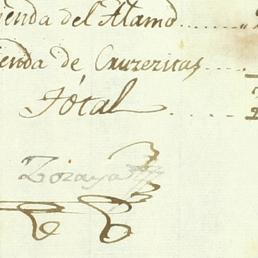 ienda del Alamo
ienda de Cruzecitas
Total
Lozaya